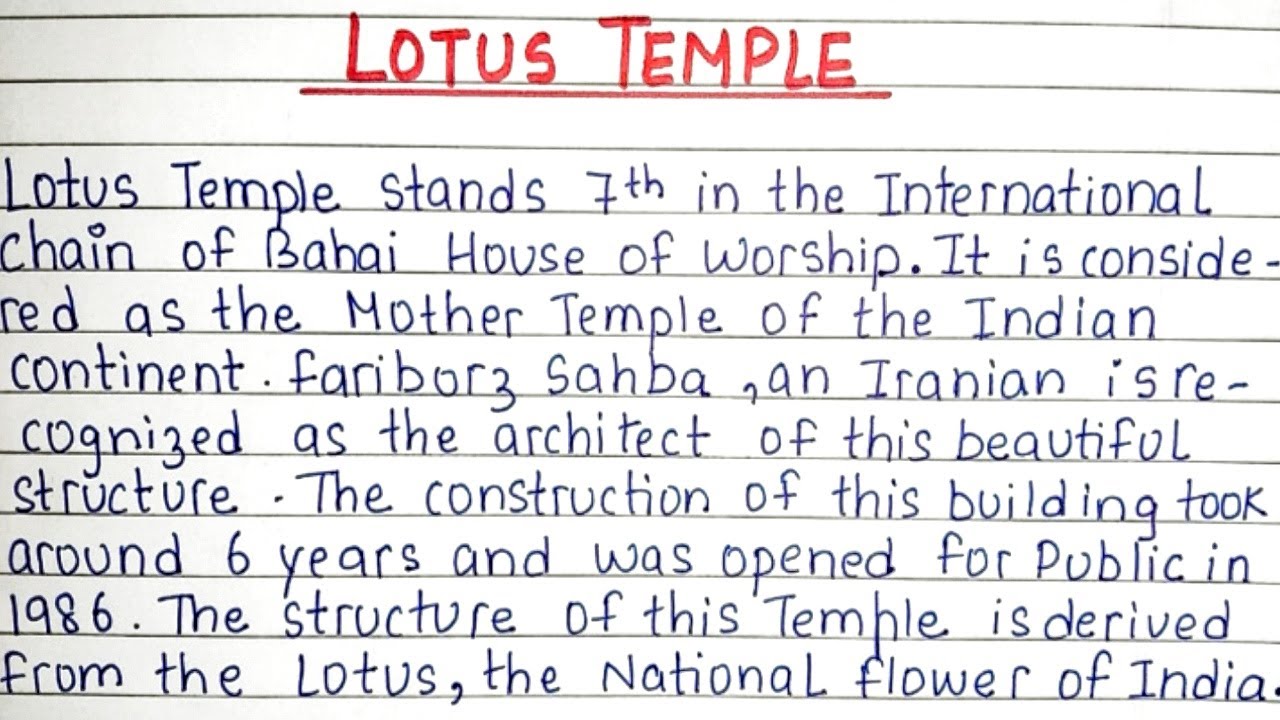 LOTUS TEMPLE
Lotus Temple stands 7th in the International
Chain of Bahai House of worship. It is conside-
red as the Mother Temple of the Indian
continent. Fariborz Sahba, an Iranian is re-
cognized as the architect of this beautiful
structure. The construction of this building took
around 6 years and was opened for Public in
1986. The structure of this Temple is derived
from the Lotus, the National flower of India.